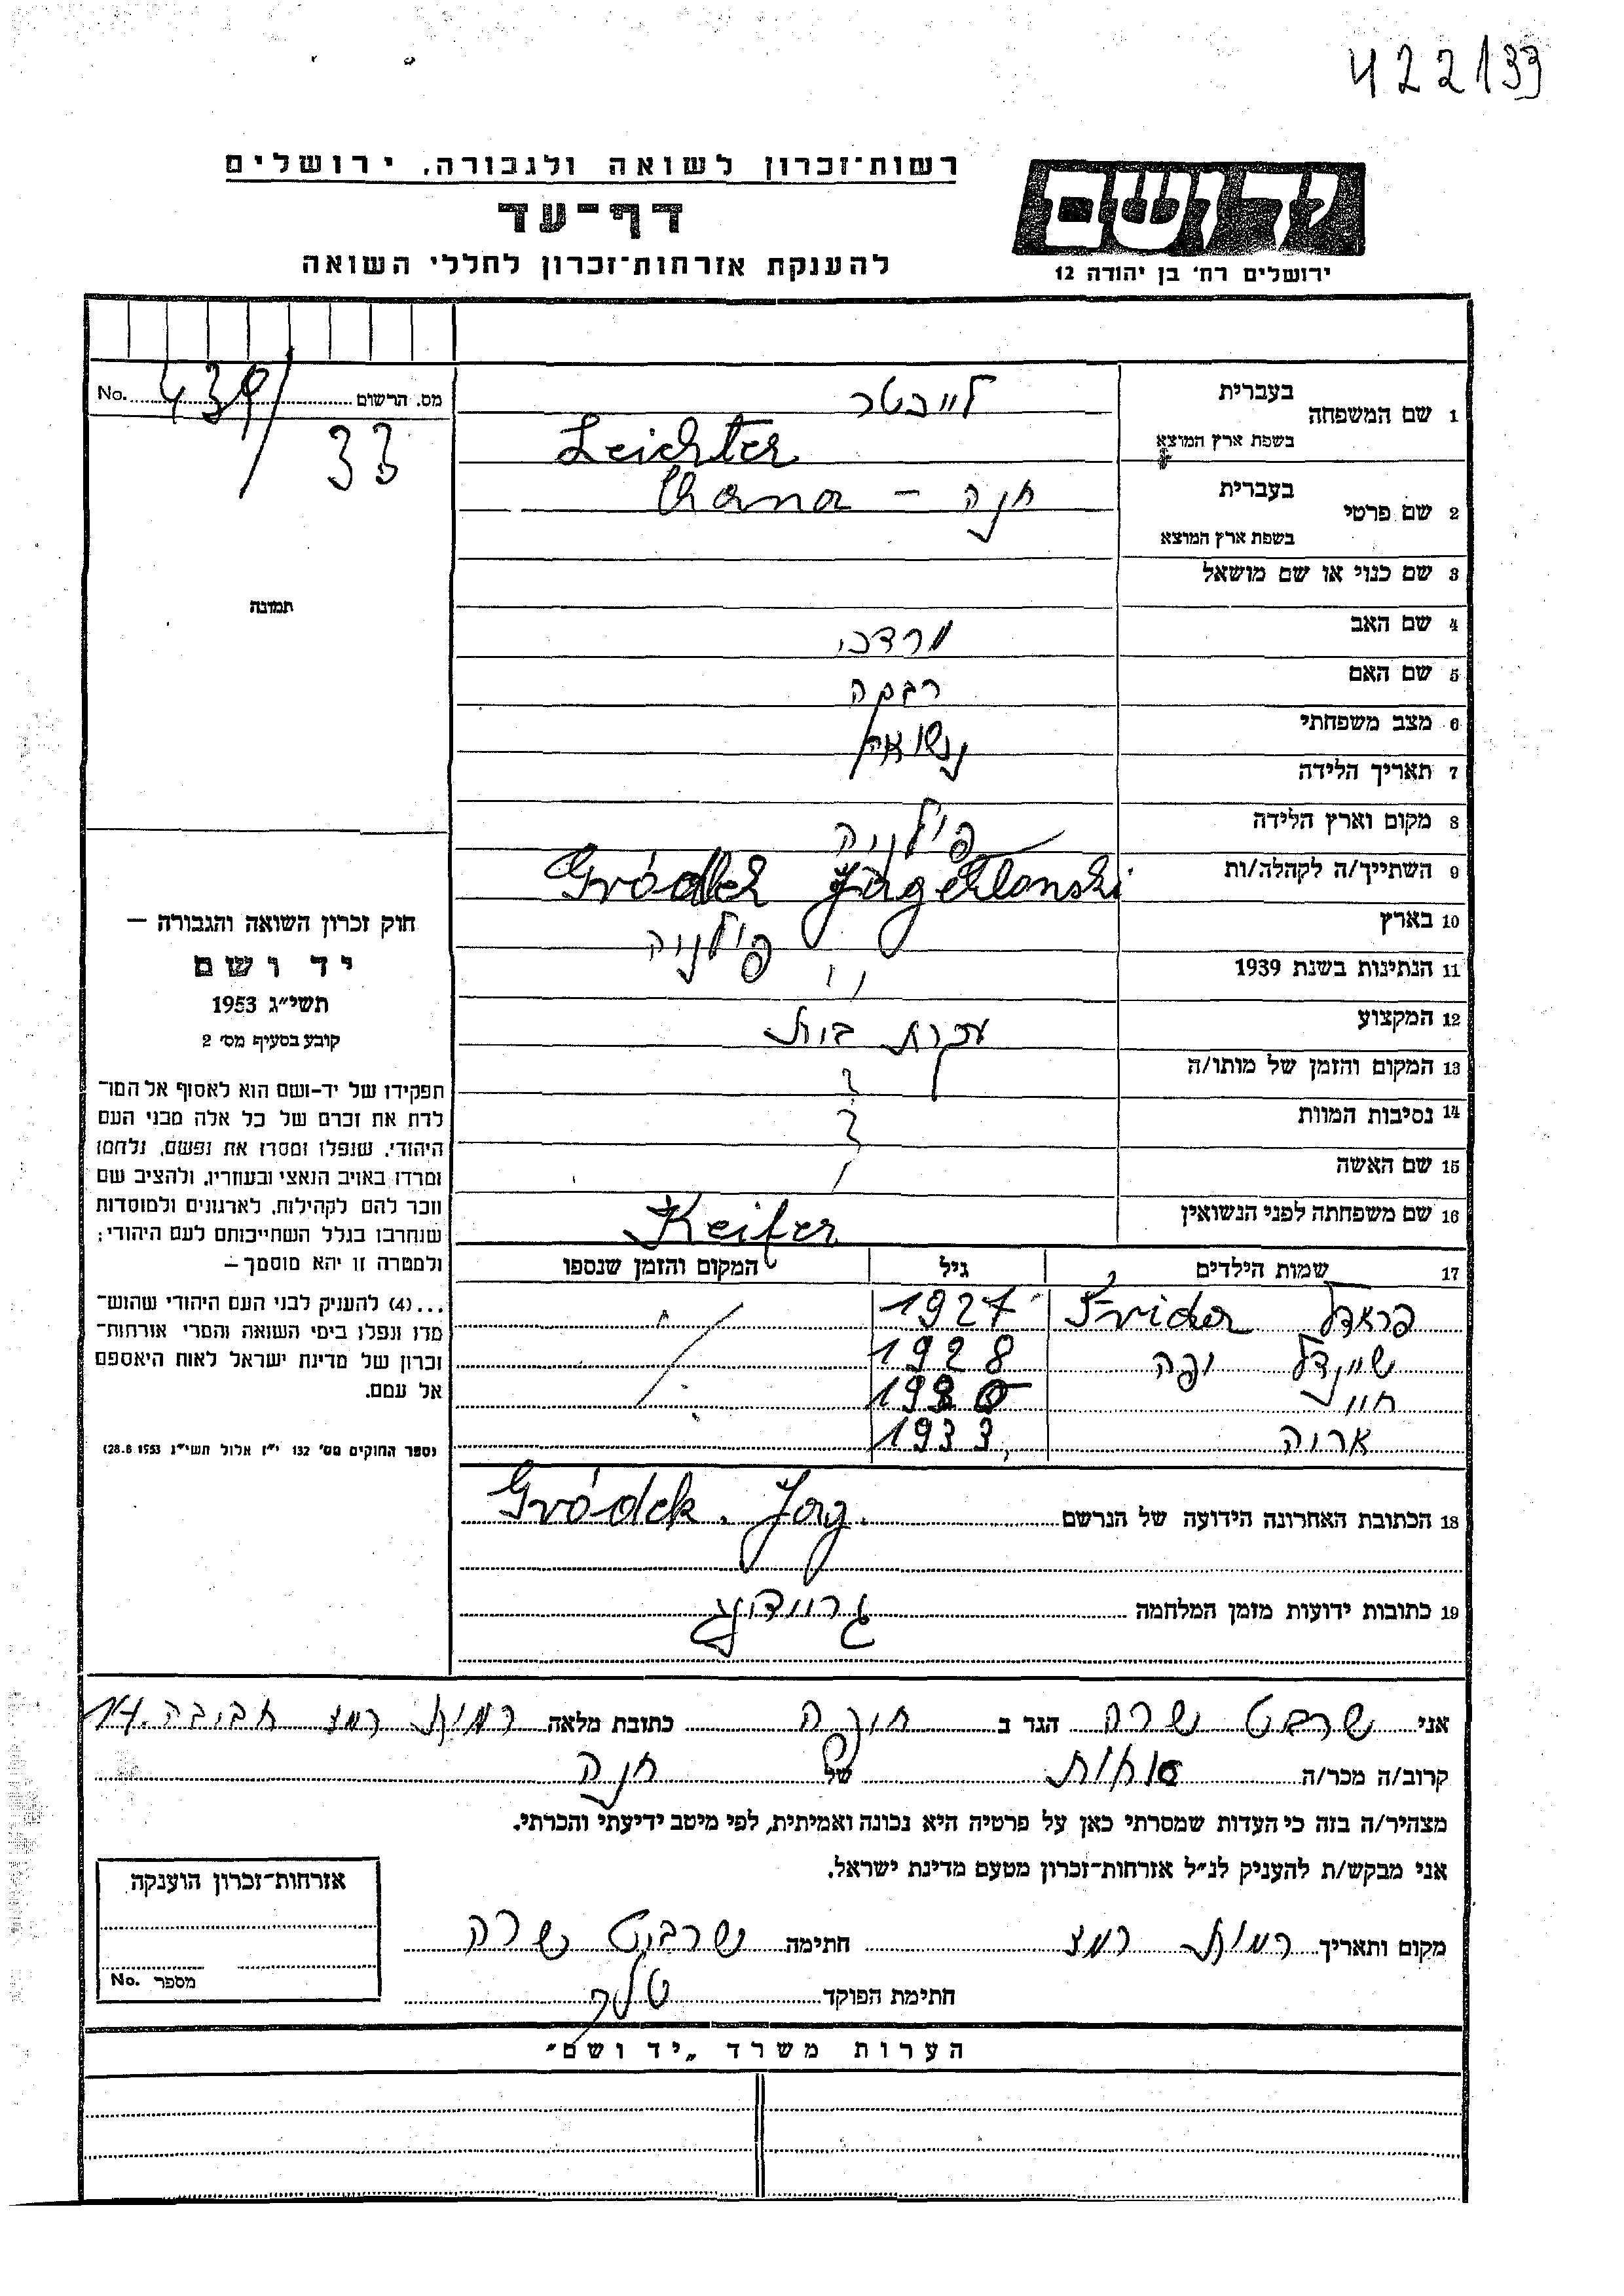 422133
רשות־זכרון לשואה ולגבורה, ירושלים
דף־עד
להענקת אזרחות־זכרון לחללי השואה
יד ושם
ירושלים רח׳ בן יהודה 12
מס. הרשום No. 439/
33
תמונה
חוק זכרון השואה והגבורה —
יד ושם
תשי״ג 1953
קובע בסעיף מס׳ 2
תפקידו של יד-ושם הוא לאסוף אל המו־
לדת את זכרם של כל אלה מבני העם
היהודי, שנפלו ומסרו את נפשם, נלחמו
ומרדו באויב הנאצי ובעוזריו, ולהציב שם
וזכר להם לקהילות, לארגונים ולמוסדות
שנחרבו בגלל השתייכותם לעם היהודי;
ולמטרה זו יהא מוסמך –
...(4) להעניק לבני העם היהודי שהוש־
מדו ונפלו בימי השואה והמרי אזרחות־
זכרון של מדינת ישראל לאות היאספם
אל עמם.
(ספר החוקים מס׳ 132 י״ז אלול תשי״ג 28.8.1953)
1 שם המשפחה בעברית לייכטר
בשפת ארץ המוצא Leichter
2 שם פרטי בעברית חנה – Chana
בשפת ארץ המוצא
3 שם כנוי או שם מושאל
4 שם האב מרדכי
5 שם האם רבקה
6 מצב משפחתי נשואה
7 תאריך הלידה
8 מקום וארץ הלידה פולניה
9 השתייך/ה לקהלה/ות Gródek Jagelonski
10 בארץ פולניה
11 הנתינות בשנת 1939 ״
12 המקצוע עקרת בית
13 המקום והזמן של מותו/ה ?
14 נסיבות המוות ?
15 שם האשה /
16 שם משפחתה לפני הנשואין Keifer
17 שמות הילדים גיל המקום והזמן שנספו
Frida 1927
שיינדל יפה 1928
1930
אריה 1933
18 הכתובת האחרונה הידועה של הנרשם Gródek. Jag.
19 כתובות ידועות מזמן המלחמה
אני שרביט שרה הגר ב חיפה כתובת מלאה רמות רמז חביבה 14
קרוב/ה מכר/ה אחות של חנה
מצהיר/ה בזה כי העדות שמסרתי כאן על פרטיה היא נכונה ואמיתית, לפי מיטב ידיעתי והכרתי.
אני מבקש/ת להעניק לנ״ל אזרחות־זכרון מטעם מדינת ישראל.
מקום ותאריך רמות רמז חתימה שרביט שרה
חתימת הפוקד
אזרחות־זכרון הוענקה
מספר No.
הערות משרד „יד ושם״